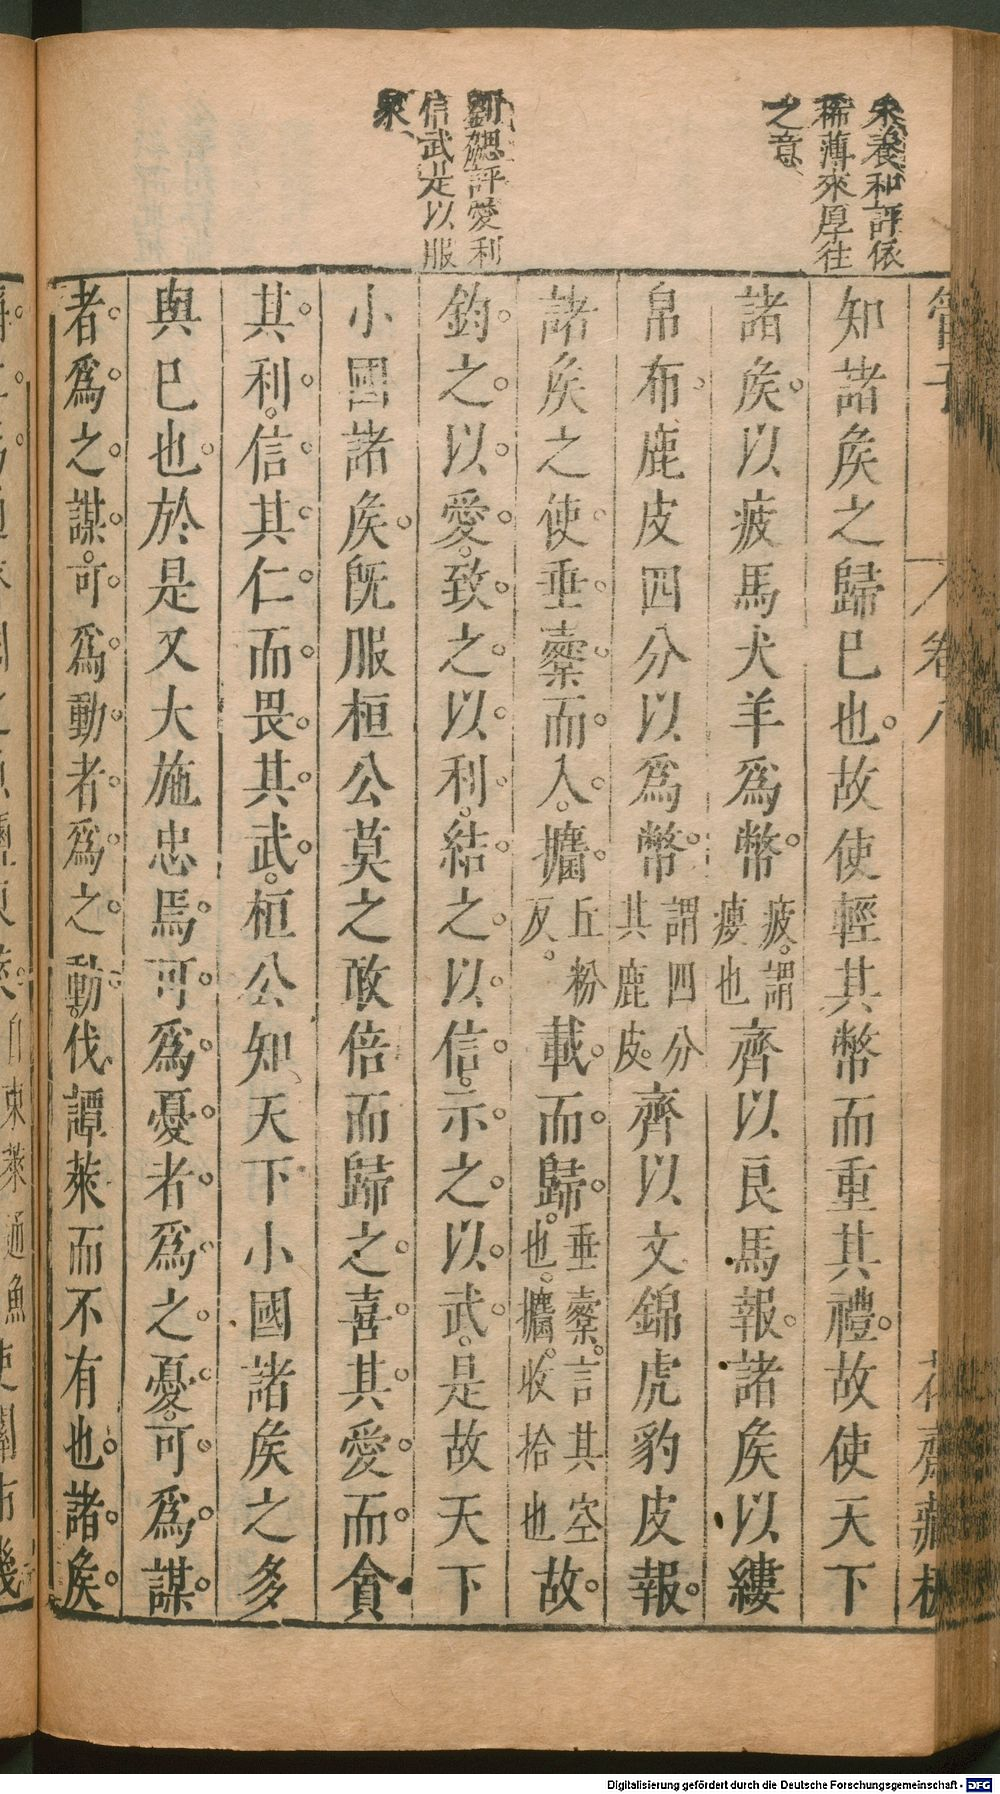 朱養和評依
稀薄來厚往
之意
劉勰評愛利
信武是以服
衆
管子 卷八 花齋藏板
知諸矦之歸巳也故使輕其幣而重其禮故使天下
諸矦以疲馬犬羊爲幣疲謂瘦也齊以良馬報諸矦以縷
帛布鹿皮四分以爲幣謂四分其鹿皮齊以文錦虎豹皮報
諸矦之使垂櫜而入攟丘粉反載而歸垂櫜言其空也攟收拾也故
鈞之以愛致之以利結之以信示之以武是故天下
小國諸矦旣服桓公莫之敢倍而歸之喜其愛而貪
其利信其仁而畏其武桓公知天下小國諸矦之多
與巳也於是又大施忠焉可爲憂者爲之憂可爲謀
者爲之謀可爲動者爲之動伐譚萊而不有也諸矦
自東萊通魚
Digitalisierung gefördert durch die Deutsche Forschungsgemeinschaft - DFG